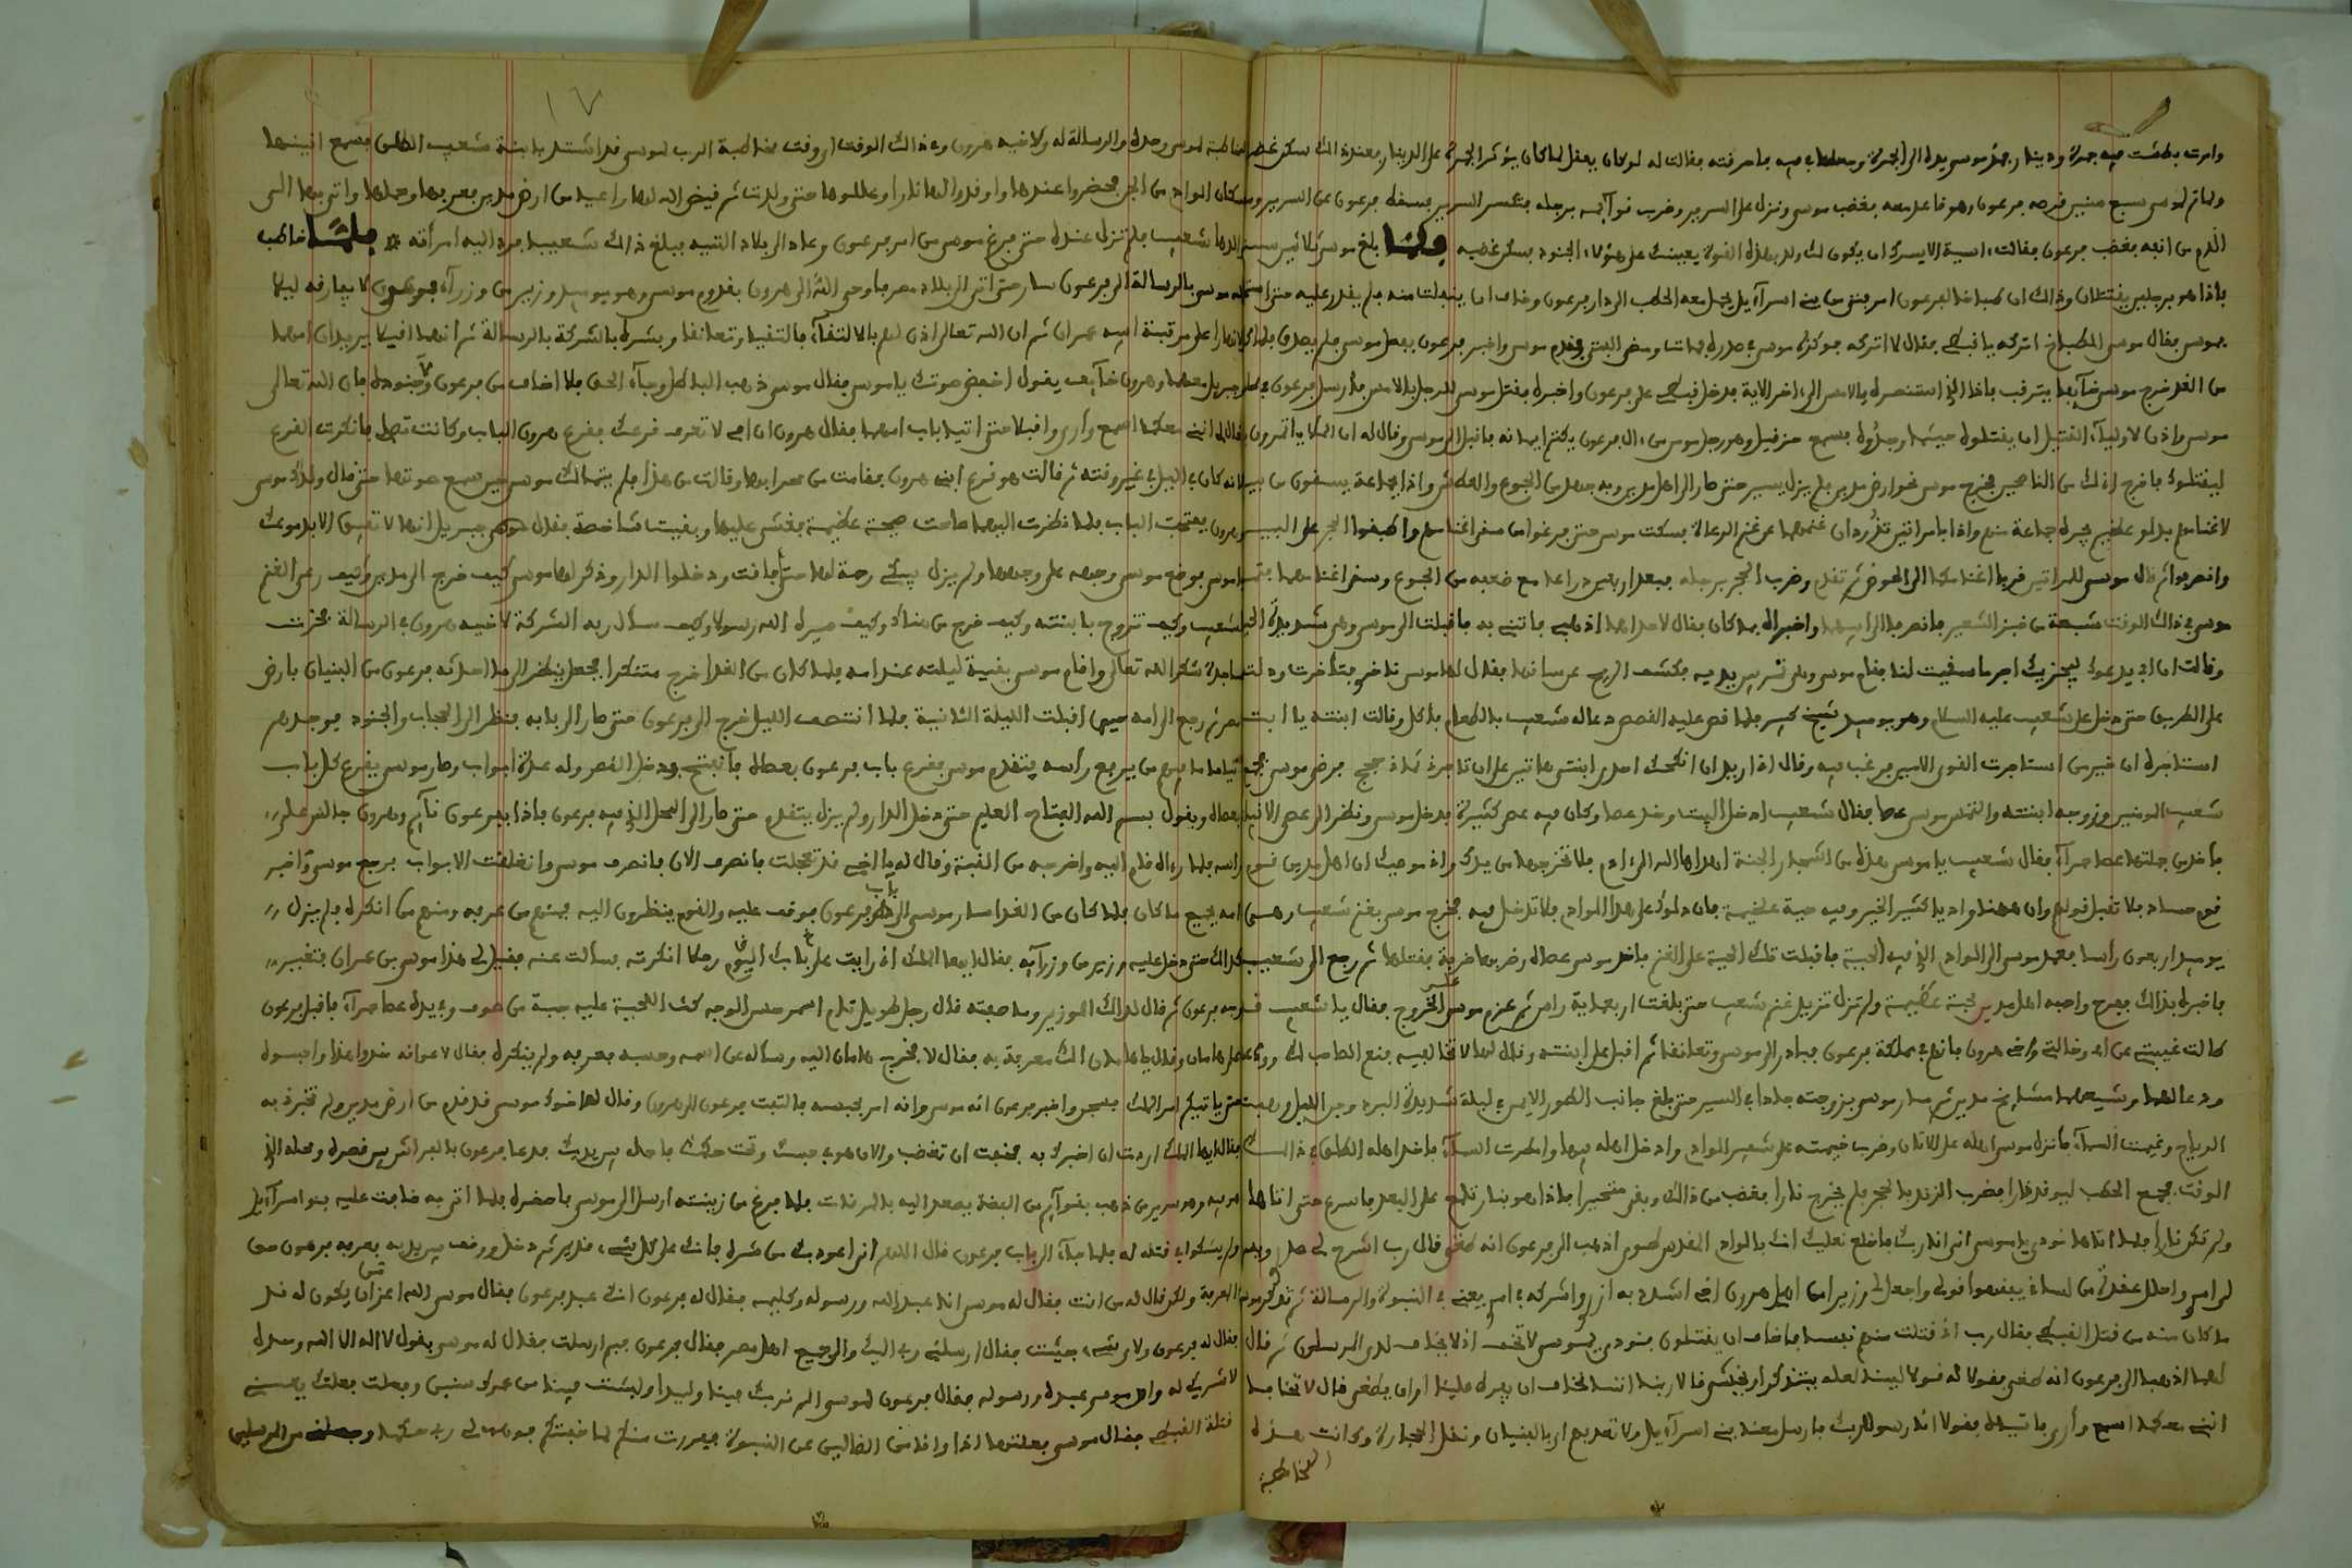 وامرت بطشت فيه جمرة ودينار فمد موسى يده الى الجمرة وجعلها في فيه فاحرقته فقالت له لو كان يعقل لما كان يؤثر الجمرة على الدينار فعند ذالك سكن غضبه
ولما تم لموسى سبع سنين قرصه فرعون وهو قاعد معه فغضب موسى ونزل على السرير وضرب قوآيمه برجله فتكسر السرير فسقط فرعون عن السرير وسال
الدم من انفه فغضب فرعون فقالت اسية الا يسرك ان يكون لك ولد بهذه القوة يعينك على هؤلاء الجنود فسكن غضبه ولما بلغ موسى ثلاثين سنة
فاذا هو برجلين يقتتلان وذالك ان طباخا لفرعون امر فتى من بني اسرآءيل يحمل معه الحطب الى دار فرعون وخاف ان ينفلت منه فلم يقدر عليه حتى استعان
بموسى فقال موسى للطباخ اتركه يا قبطي فقال لا اتركه فوكزه موسى في صدره فمات ومضى الفتى وندم موسى واخبر فرعون بفعل موسى فلم يصدق فلما كان
من الغد خرج موسى خآيفا يترقب فاذا الذي استنصره بالامس الى اخر الاية فدخل قبطي على فرعون واخبره بقتل موسى للرجل بالامس فارسل فرعون في طلب
موسى واذن لاوليآء القتيل ان يقتلوه حيثما وجدوه فسمع حزقيل وهو رجل مومن من ال فرعون يكتم ايمانه فاقبل الى موسى وقال له ان الملأ ياتمرون بك
ليقتلوك فاخرج اني لك من الناصحين فخرج موسى نحو ارض مدين فلم يزل يسير حتى صار الى اهل مدين وبه جهد من الجوع والعطش واذا بجماعة يسقون من بير
لاغنامهم بدلو عظيم يجره جماعة منهم واذا بامراتين تذودان غنمهما عن غنم الرعاة فسكت موسى حتى فرغوا من سقي اغنامهم واطبقوا الحجر على البير
وانصرفوا ثم قال موسى للمراتين قربا اغنامكما الى الحوض ثم تقدم وضرب الحجر برجله فبعد اربعين دراعا مع ضعفه من الجوع وسقى اغنامهما
موسى في ذالك الوقت شبعة من خبز الشعير فانصرفا الى ابيهما واخبراه بما كان فقال لاحداهما اذهبي فاتيني به فاقبلت الى موسى وهي شديدة الحيا
وقالت ان ابي يدعوك ليجزيك اجر ما سقيت لنا فقام موسى بين يديه فكشف الريح عن ساقها فقال لها موسى تاخري فتاخرت ودلته
على الطريق حتى دخل على شعيب عليه السلام وهو يوميذ شيخ كبير فلما قص عليه القصص دعا له شعيب بالطعام فاكل وقالت ابنته يا ابت
استاجره ان خير من استاجرت القوي الامين فرغب فيه وقال اني اريد ان انكحك احدى ابنتي هاتين على ان تاجرني ثماني حجج فرضي موسى فجمع
شعيب المومنين وزوجه ابنته والتمس موسى عصا فقال شعيب ادخل البيت وخذ عصا وكان فيه عصى كثيرة فدخل موسى ونظر الى عصى الانبياء
فاخذ من جملتها عصا حمرآء فقال شعيب يا موسى هذه من اشجار الجنة اهداها الله الى ءادم فلا تخرجها من يدك واني موصيك ان اهل مدين قوم
قوم حساد فلا تقبل قولهم وان ههنا واديا كثير الخير وفيه حية عظيمة فان دلوك على هذا الوادي فلا تدخل فيه فخرج موسى بغنم شعيب وهي
يوميذ اربعون راسا فعمد موسى الى الوادي الذي فيه الحية فاقبلت تلك الحية على الغنم فاخذ موسى عصاه وضربها ضربة فقتلها ثم رجع الى شعيب
فاخبره بذالك ففرح واحبه اهل مدين محبة عظيمة ولم تزل تزيد غنم شعيب حتى بلغت اربعماية راس ثم عزم موسى على الخروج فقال يا شعيب قد
طالت غيبتي عن امي وخالتي واخي هرون فانهم في مملكة فرعون فبادر الى موسى وتعانقا ثم اقبل على ابنته وقال لها لا تخالفيه فنعم الصاحب لك
ودعا لهما وشيعهما مشايخ مدين ثم سار موسى بزوجته جادا في السير حتى بلغ جانب الطور الايمن في ليلة شديدة البرد وجن الليل وهبت
الرياح وغيمت السمآء فانزل موسى اهله على الاتان وضرب خيمته على شفير الوادي وادخل اهله فيها وامطرت السمآء فاخذ اهله الطلق في ذالك
الوقت فجمع الحطب ليوقد نارا فضرب الزند بالحجر فلم يخرج نارا فغضب من ذالك وبقي متحيرا فاذا هو بنار تلمع على البعد فاسرع حتى اتاها
ولم تكن نارا فلما اتاها نودي يا موسى اني انا ربك فاخلع نعليك انك بالوادي المقدس طوى اذهب الى فرعون انه طغى قال رب اشرح لي صدري ويسر
لي امري واحلل عقدة من لساني يفقهوا قولي واجعل لي وزيرا من اهلي هرون اخي اشدد به ازري واشركه في امري يعني في النبوة والرسالة ثم تذكر موسى
ما كان منه من قتل القبطي فقال رب اني قتلت منهم نفسا فاخاف ان يقتلون فنودي يموسى لا تخف اني لا يخاف لدي المرسلون ثم قال
لهما اذهبا الى فرعون انه طغى فقولا له قولا لينا لعله يتذكر او يخشى قالا ربنا اننا نخاف ان يفرط علينا او ان يطغى قال لا تخافا
انني معكما اسمع وارى فاتياه فقولا انا رسولا ربك فارسل معنا بني اسرآءيل ولا تعذبهم اي بالبنيان ونقل الحجارة وكانت هذه
المخاطبة
١٧
المخاطبة لموسى وحده والرسالة له ولاخيه هرون وفي ذالك الوقت اي وقت مخاطبة الرب لموسى قد اشتد بابنة شعيب الطلق فسمع انينها
سكان الوادي من الجن فحضروا عندها واوقدوا لها نارا وعللوها حتى ولدت ثم قيض الله لها راعيا من ارض مدين فعرفها وحملها واتى بها الى
ابيها شعيب فلم تزل عنده حتى فرغ موسى من امر فرعون وعاد الى بلاد التيه فبلغ ذالك شعيبا فرد اليه امرأته فلما خاطب
الله موسى بالرسالة الى فرعون سار حتى اتى الى بلاد مصر فاوحى الله الى هرون بقدوم موسى وهو يوميذ وزير من وزرآء فرعون لا يفارقه ليلا
ولا نهارا على مرتبة ابيه عمران ثم ان الله تعالى اذن لهم بالالتقآء فالتقيا وتعانقا وبشره بالشركة بالرسالة ثم انهما اقبلا يريدان امهما
وجبريل معهما وهرون خآيف يقول اخفض صوتك يا موسى فقال موسى ذهب الباطل وجآء الحق فلا اخاف من فرعون ولا جنوده فان الله تعالى
قال لنا انني معكما اسمع وارى واقبلا حتى اتيا باب امهما فقال هرون ان امي لا تعرف قرعك فقرع هرون الباب وكانت تصلي فانكرت القرع
لانه كان في الليل في غير وقته ثم قالت هو قرع ابني هرون فقامت من محرابها وقالت من هذا فلم يتمالك موسى حين سمع صوتها حتى قال ولدك موسى
وهرون ففتحت الباب فلما نظرت اليهما صاحت صيحة عظيمة فغشي عليها وبقيت شاخصة فقال جبريل انها لا تفيق الا بدموعك
يا موسى فوضع موسى وجهه على وجهها ولم يزل يبكي رحمة لها حتى افاقت ودخلوا الدار وذكر لها موسى كيف خرج الى مدين وكيف رعى الغنم
لشعيب وكيف تزوج بابنته وكيف خرج من هناك وكيف صيره الله رسولا وكيف سأل ربه الشركة لاخيه هرون في الرسالة فخرت
ساجدة شكرا لله تعالى واقام موسى بقية ليلته عند امه فلما كان من الغد خرج متنكرا فجعل ينظر الى ما احدثه فرعون من البنيان بارض
مصر ثم رجع الى امه حين اقبلت الليلة الثانية فلما انتصف الليل خرج الى فرعون حتى صار الى بابه فنظر الى الحجاب والجنود فوجدهم
نياما ما فيهم من يرفع رأسه فتقدم موسى فقرع باب فرعون بعصاه فانفتح ودخل القصر وله عدة ابواب وصار موسى يقرع كل باب
بعصاه ويقول بسم الله الفتاح العليم حتى دخل الدار ولم يزل يتقدم حتى صار الى المحل الذي فيه فرعون فاذا بفرعون نآيم وهرون جالس على
راسه فلما رءاه قام اليه واخرجه من القبة وقال له يا اخي قد تعجلت فانصرف الان فانصرف موسى وانغلقت الابواب فرجع موسى واخبر
امه بجميع ما كان فلما كان من الغد اسار موسى الى باب فرعون فوقف عليه والقوم ينظرون اليه فمنهم من عرفه ومنهم من انكره فلم يزل
كذالك حتى دخل عليه وزير من وزرآيه فقال ايها الملك اني رايت على بابك اليوم رجلا انكرته فسألت عنه فقيل لي هذا موسى بن عمران فتغير
وجه فرعون ثم قال لذالك الوزير وما صفته قال رجل طويل تام اسمر حسن الوجه كث اللحية عليه جبة من صوف وفي يده عصا حمرآء فاقبل فرعون
على هامان وقال يا هامان الك معرفة به فقال لا فخرج هامان اليه وسأله عن اسمه وحسبه فعرفه ولم ينكره فقال لاعوانه خذوا هذا واحبسوه
حتى ياتيكم امر الملك فسجن واخبر فرعون انه موسى وانه امر بحبسه فالتفت فرعون الى هرون وقال له اخوك موسى قد قدم من ارض مدين ولم تخبرني به
فقال ايها الملك اردت ان اخبرك به فخفت ان تغضب والان هو في حبسك وتحت حكمك فاحله بين يديك فدعا فرعون بالفراشين وزين قصره ومحله الذي
هو فيه وهو سرير من ذهب بقوآيم من الفضة يصعد اليه بالمرقات فلما فرغ من زينته ارسل الى موسى فاحضره فلما اتى به خافت عليه بنو اسرآءيل
ولم يشكوا في قتله له فلما جآء الى باب فرعون قال اللهم اني اعوذ بك من شره فانك على كل شيء قدير ثم دخل ووقف بين يديه فعرفه فرعون حق
المعرفة ولكن قال له من انت فقال له موسى انا عبد الله ورسوله وكليمه فقال له فرعون انت عبد فرعون فقال موسى الله اعز من ان يكون له ند
فقال له فرعون ولاي شيء جيئت فقال ارسلني ربي اليك والى جميع اهل مصر فقال فرعون فبم ارسلت فقال له موسى بقول لا اله الا الله وحده
لا شريك له وان موسى عبده ورسوله فقال فرعون لموسى الم نربك فينا وليدا ولبثت فينا من عمرك سنين وفعلت فعلتك يعني
قتلة القبطي فقال موسى فعلتها اذا وانا من الضالين عن النبوة ففررت منكم لما خفتكم فوهب لي ربي حكما وجعلني من المرسلين